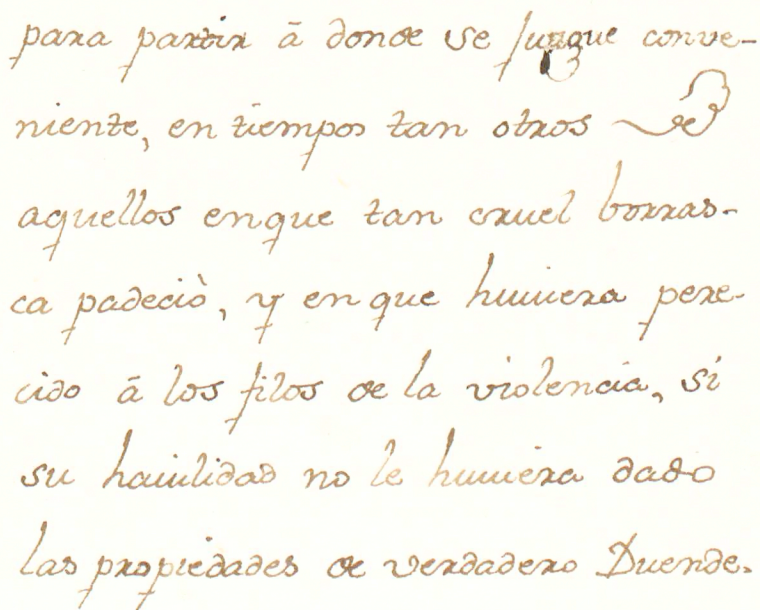 para partir â donde se juzgue conve-
niente, en tiempos tan otros de
aquellos enque tan cruel borras-
ca padeciò, y en que huuiera pere-
cido â los filos de la violencia, si
su hauilidad no le huuiera dado
las propiedades de verdadero Duende.